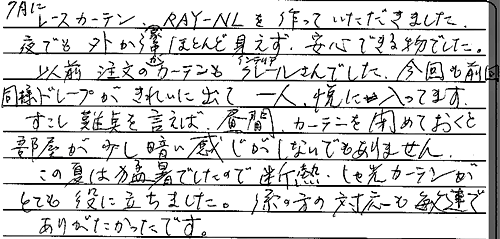 7月に
レースカーテン、RAY-NLを作っていただきました。
夜でも外から家がほとんど見えず、安心できる物でした。
以前注文のカーテンもインテリアクレールさんでした。今回も前回
同様ドレープがきれいに出て一人、悦に入ってます。
すこし難点を言えば、昼間、カーテンを閉めておくと
部屋が少し暗い感じがしないでもありません。
この夏は猛暑でしたので断熱・しゃ光カーテンが
とても役に立ちました。係の方の対応も敏速で
ありがたかったです。